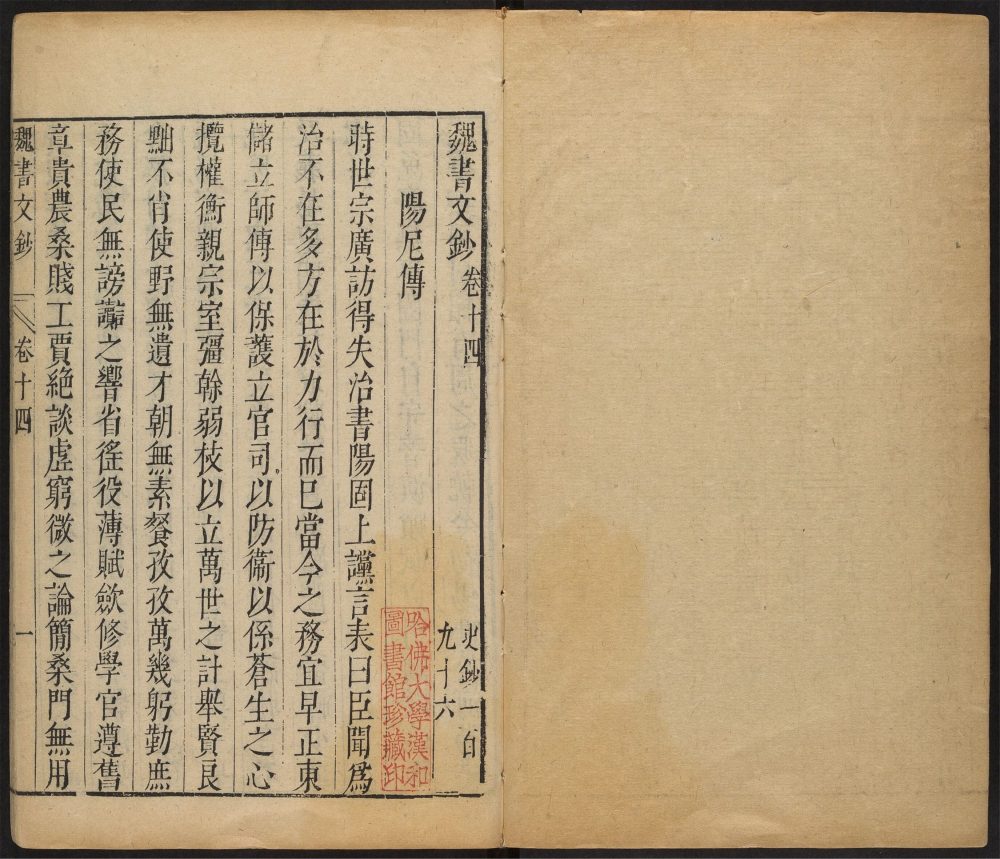 魏書文鈔卷十四
史鈔一百
九十六
陽尼傳
時世宗廣訪得失治書陽固上讜言表曰臣聞爲
治不在多方在於力行而已當今之務宜早正東
儲立師傅以保護立官司以防衞以係蒼生之心
攬權衡親宗室彊榦弱枝以立萬世之計舉賢良
黜不肖使野無遺才朝無素餐孜孜萬幾躬勤庶
務使民無謗讟之響省徭役薄賦歛修學官遵舊
章貴農桑賤工賈絶談虛窮微之論簡桑門無用
魏書文鈔
卷十四
一
哈佛大學漢和
圖書館珍藏印